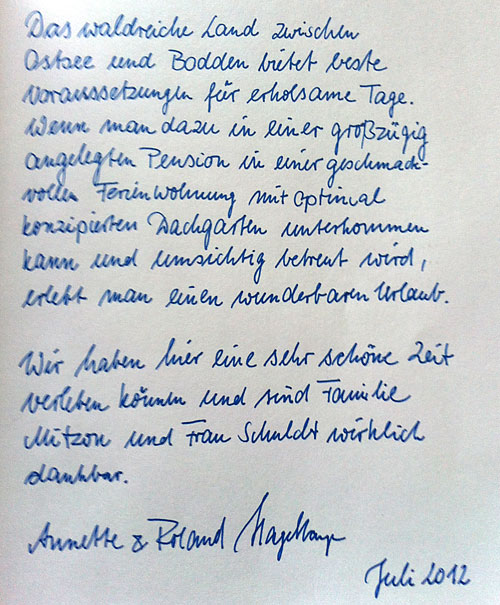 Das waldreiche Land zwischen
Ostsee und Bodden bietet beste
Voraussetzungen für erholsame Tage.
Wenn man dazu in einer großzügig
angelegten Pension in einer geschmack-
vollen Ferienwohnung mit optimal
konzipierten Dachgarten unterkommen
kann und umsichtig betreut wird,
erlebt man einen wunderbaren Urlaub.
Wir haben hier eine sehr schöne Zeit
verleben können und sind Familie
Mitzon und Frau Schuldt wirklich
dankbar.
Annette & Roland
Juli 2012